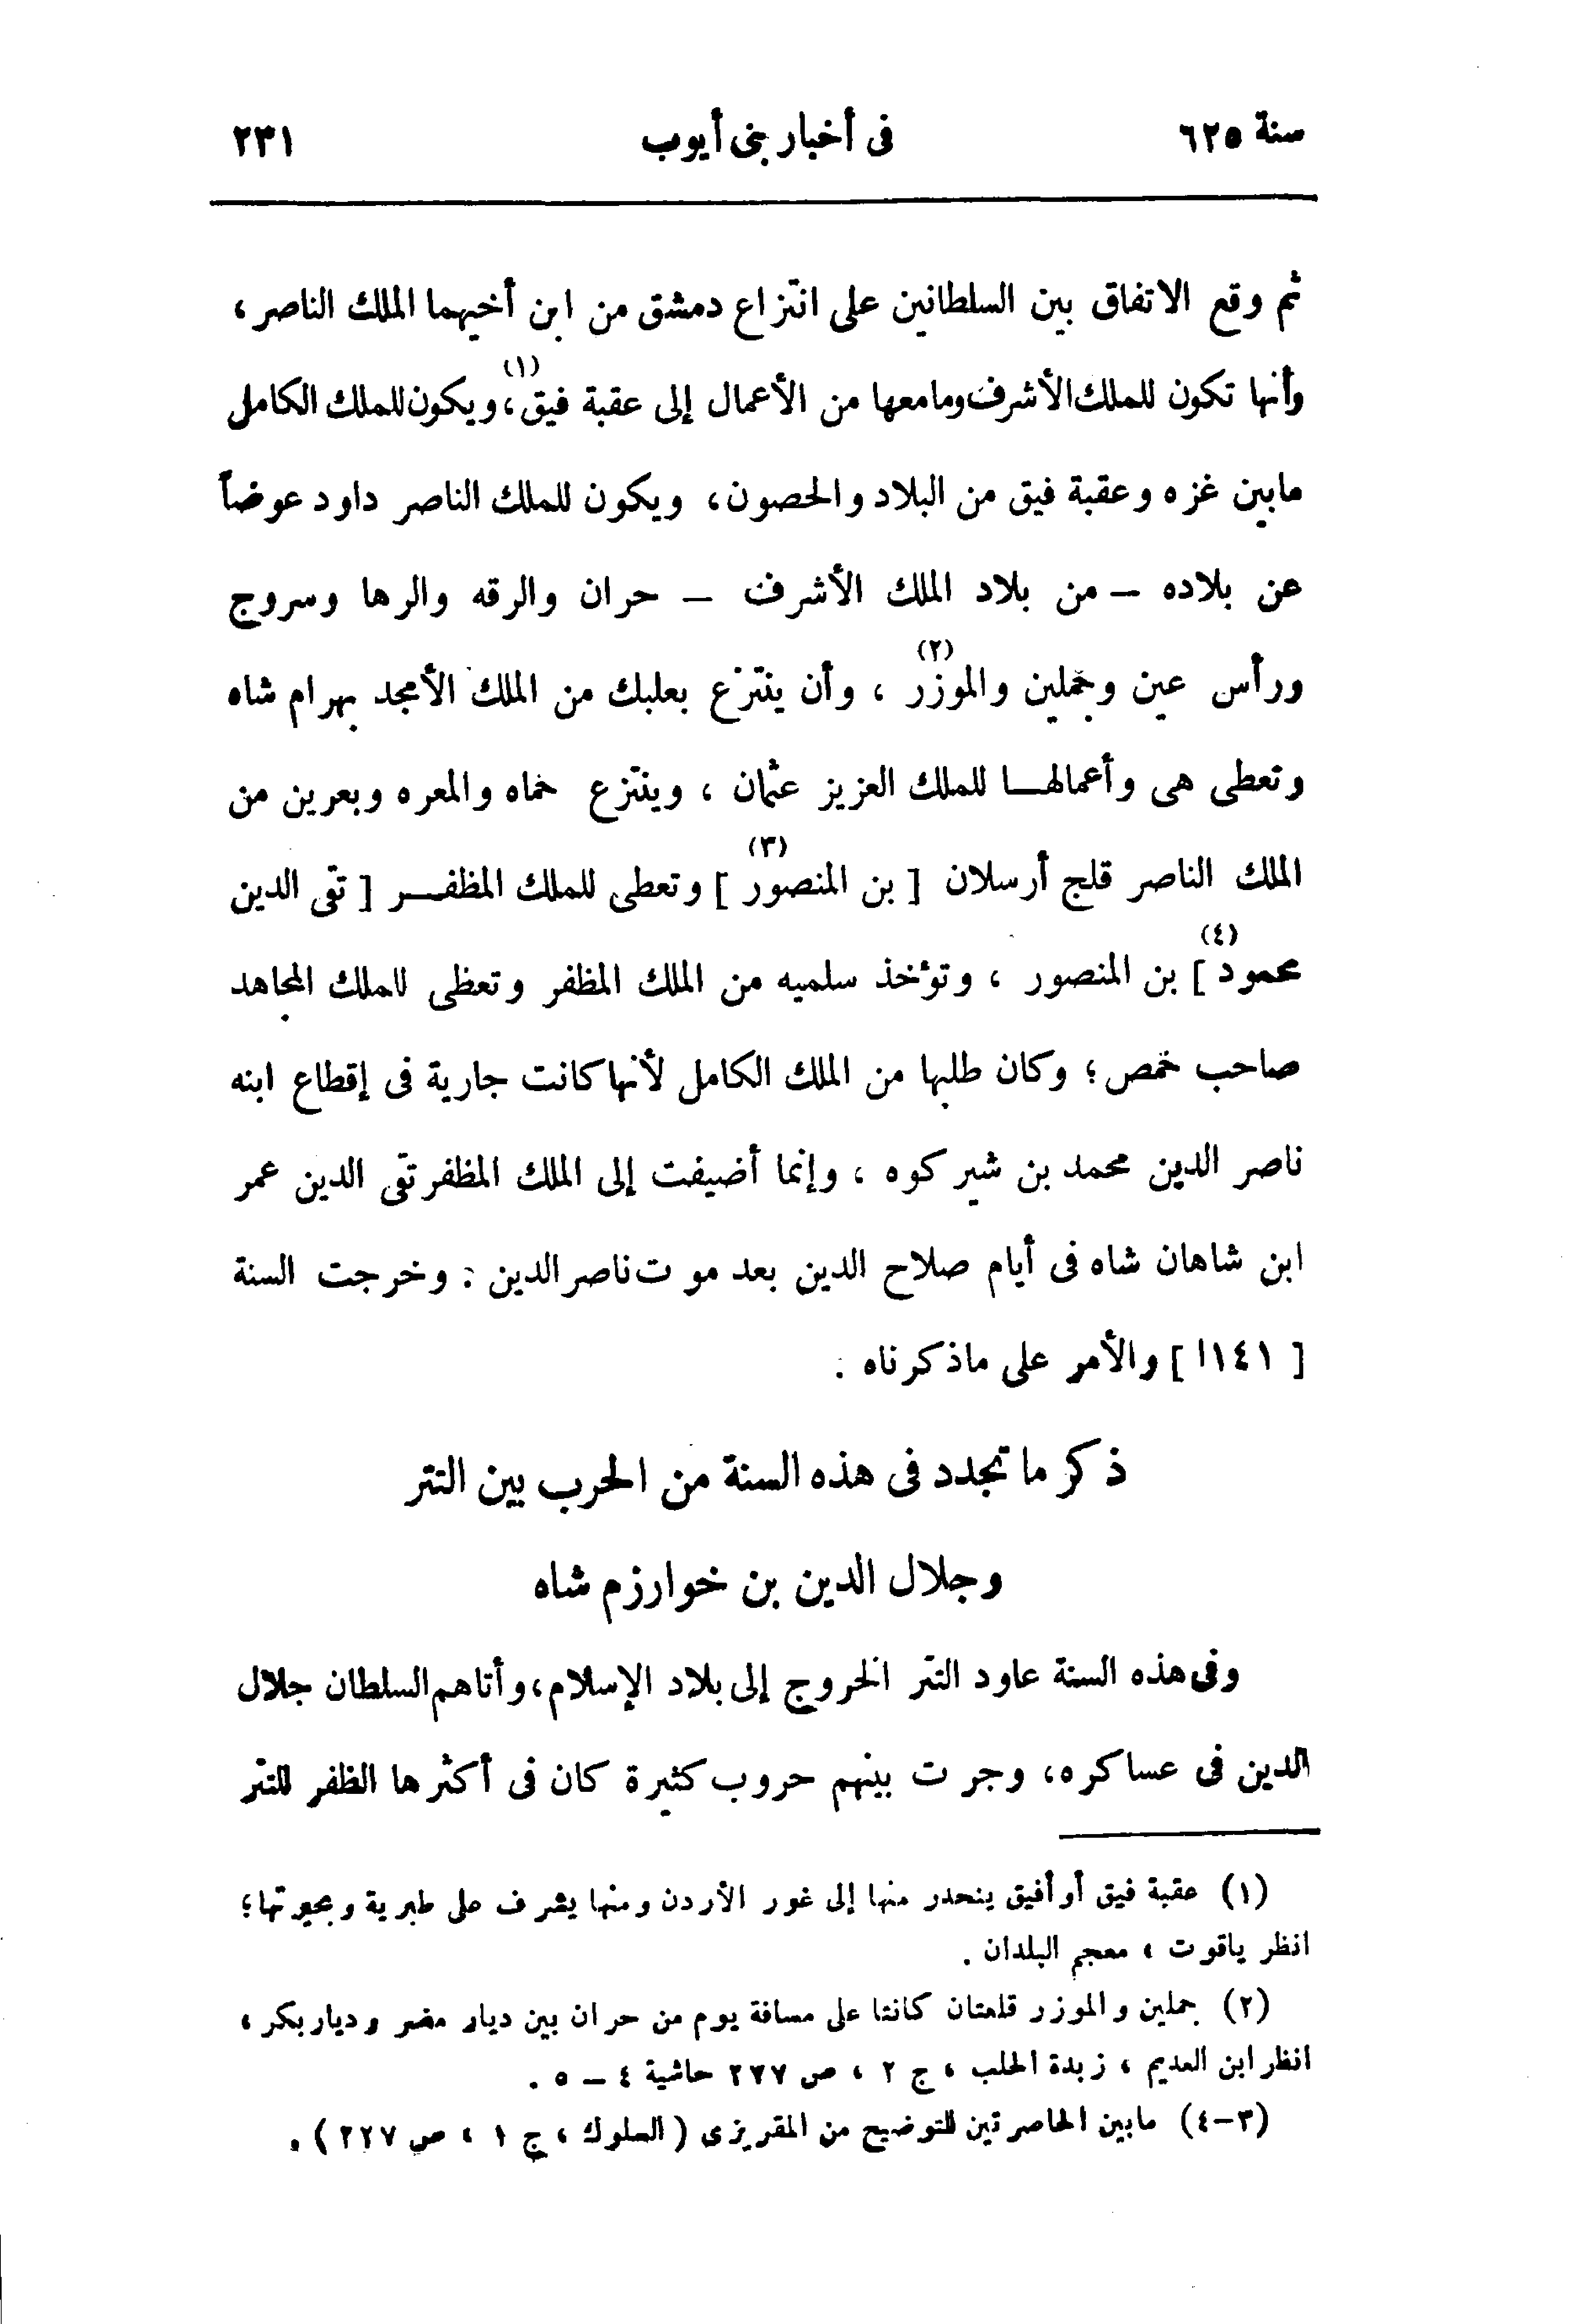 سنة ٦٢٥ فى أخبار بنى أيوب ٢٣١
ثم وقع الاتفاق بين السلطانين على انتزاع دمشق من ابن أخيهما الملك الناصر ،
وأنها تكون للملك الأشرف ومامعها من الأعمال إلى عقبة فيق(١)، ويكون للملك الكامل
مابين غزه وعقبة فيق من البلاد والحصون ، ويكون للملك الناصر داود عوضاً
عن بلاده – من بلاد الملك الأشرف – حران والرقه والرها وسروج
ورأس عين وجملين والموزر(٢) ، وأن ينتزع بعلبك من الملك الأمجد بهرام شاه
وتعطى هى وأعمالها للملك العزيز عثمان ، وينتزع حماه والمعره وبعرين من
الملك الناصر قلج أرسلان [ بن المنصور(٣) ] وتعطى للملك المظفر [ تقى الدين
محمود(٤) ] بن المنصور ، وتؤخذ سلميه من الملك المظفر وتعظى للملك المجاهد
صاحب حمص ؛ وكان طلبها من الملك الكامل لأنها كانت جارية فى إقطاع ابنه
ناصر الدين محمد بن شيركوه ، وإنما أضيفت إلى الملك المظفر تقى الدين عمر
ابن شاهان شاه فى أيام صلاح الدين بعد موت ناصر الدين . وخرجت السنة
[ ١٤١ا ] والأمر على ماذكرناه .
ذكر ما تجدد فى هذه السنة من الحرب بين التتر
وجلال الدين بن خوارزم شاه
وفى هذه السنة عاود التتر الخروج إلى بلاد الإسلام، وأتاهم السلطان جلال
الدين فى عساكره، وجرت بينهم حروب كثيرة كان فى أكثرها الظفر للتتر
(١) عقبة فيق أو أفيق ينحدر منها إلى غور الأردن ومنها يشرف على طبرية وبحيرتها ؛
انظر ياقوت ، معجم البلدان .
(٢) جملين والموزر قلعتان كانتا على مسافة يوم من حران بين ديار مضر وديار بكر ،
انظر ابن العديم ، زبدة الحلب ، ج ٢ ، ص ٢٧٧ حاشية ٤ – ٥ .
(٣–٤) مابين الحاصرتين للتوضيح من المقريزى ( السلوك ، ج ١ ، ص ٢٢٧ ) .